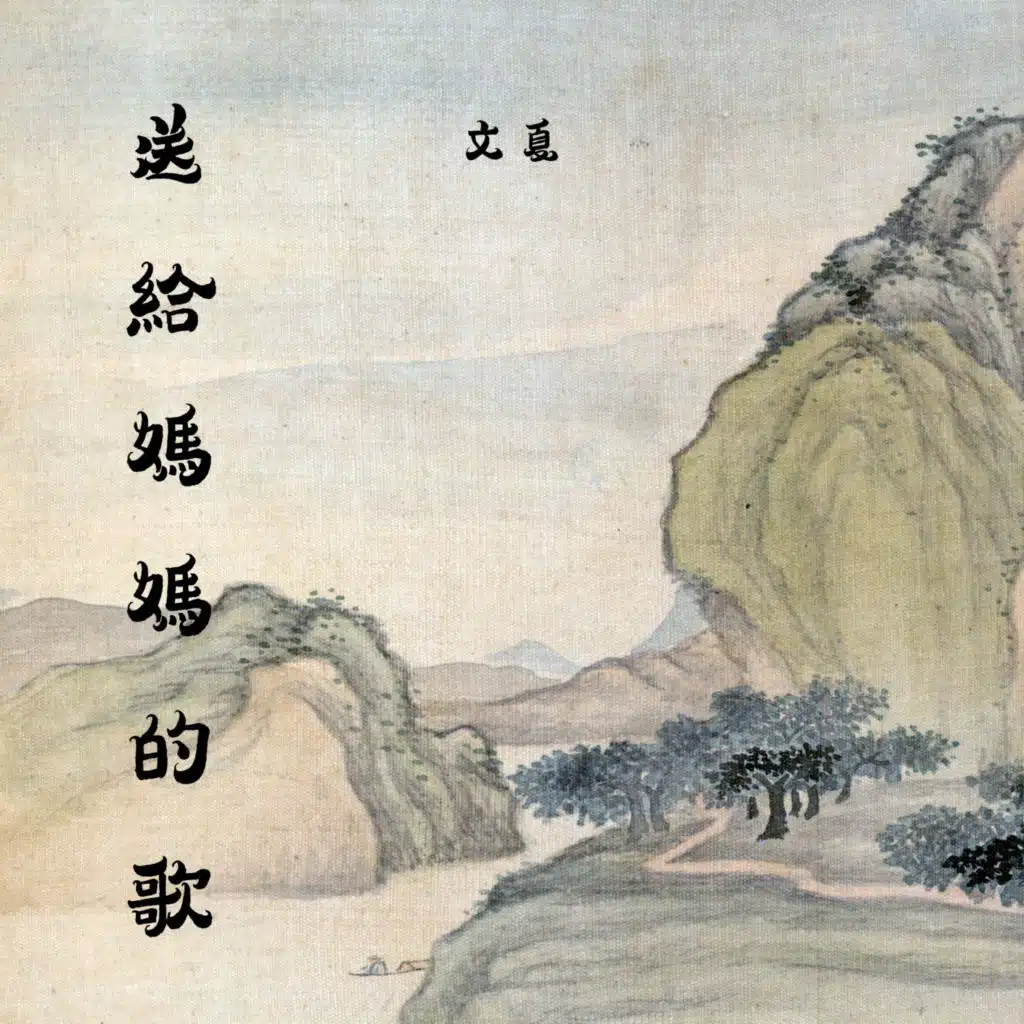 送給媽媽的歌
文夏